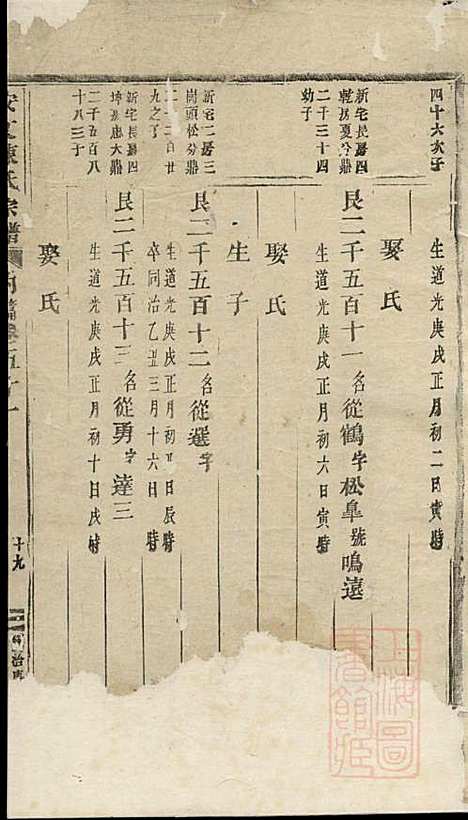 四十六次子
生道光庚戌正月初二日寅時
娶氏
新宅長房四
乾房夏分鼎
二千三十四
幼子
良二千五百十一名從鶴字松臯號鳴遠
生道光庚戌正月初六日寅時
娶氏
生子
新宅二房三
崗頭松分鼎
二千二百廿
九之子
良二千五百十二名從選字
生道光庚戌正月初五日辰時
卒同治乙丑三月十六日 時
新宅長房四
坤房忠大鼎
二千五百八
十八三子
良二千五百十三名從勇字達三
生道光庚戌正月初十日戌時
娶氏
氏宗譜
十九
上海圖
書館藏